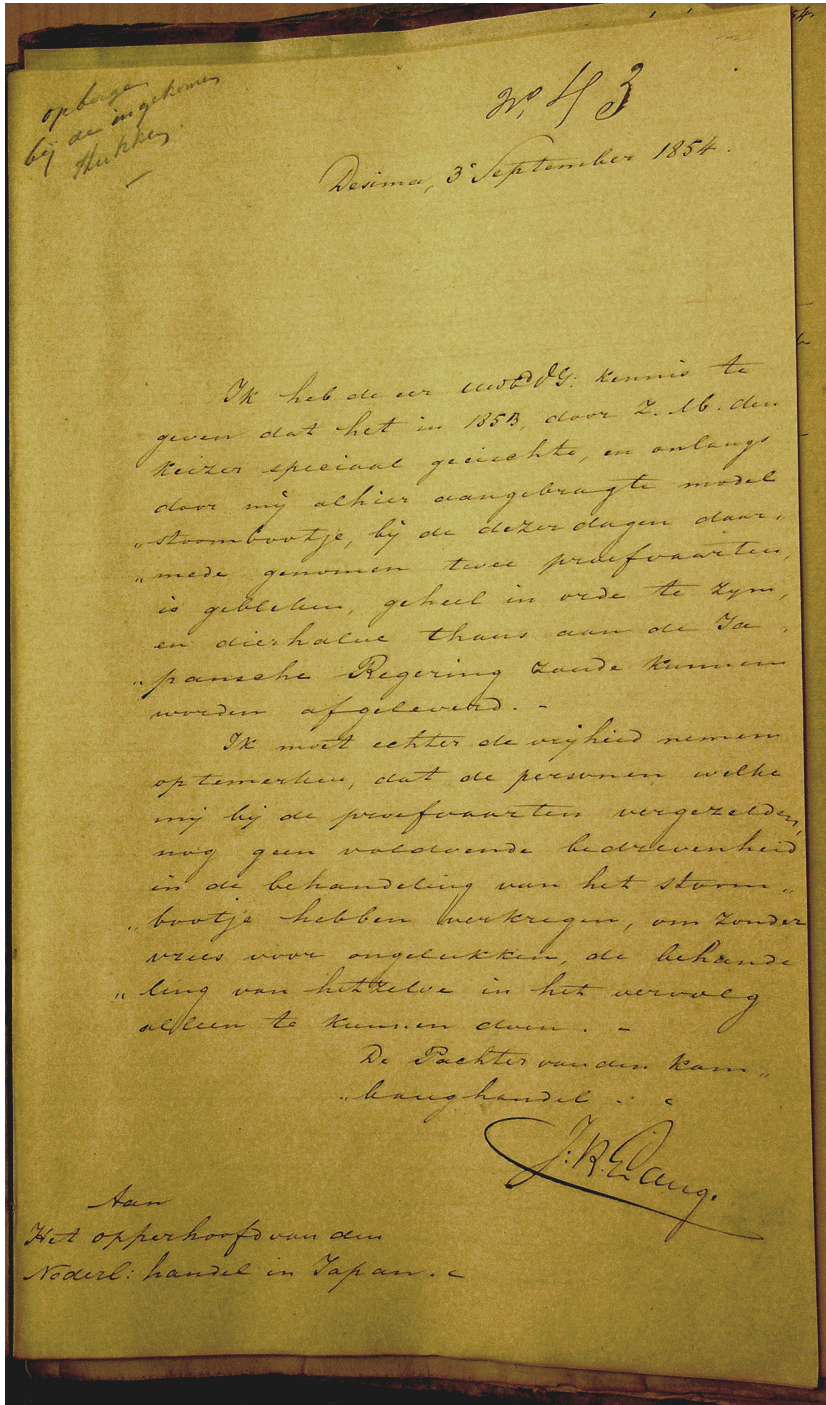 opbergen
bij de ingekomen
stukken
No. 43
Desima, 3e September 1854.
Ik heb de eer UWEdG: kennis te
geven dat het in 1853, door Z. M. den
keizer speciaal geeischte, en onlangs
door mij alhier aangebragte model
„stoombootje, bij de dezer dagen daar„
„mede genomen twee proefvaarten,
is gebleken, geheel in orde te zijn,
en dierhalve thans aan de Ja„
„pansche Regering zoude kunnen
worden afgeleverd. -
Ik moet echter de vrijheid nemen
optemerken, dat de personen welke
mij bij de proefvaarten vergezelden,
nog geen voldoende bedrevenheid
in de behandeling van het stoom„
„bootje hebben verkregen, om zonder
vrees voor ongelukken, de behande
„ling van hetzelve in het vervolg
alleen te kunnen doen. -
De Pachter van den kam„
„banghandel.
J: R. Lange.
Aan
Het opperhoofd van den
Nederl: handel in Japan.